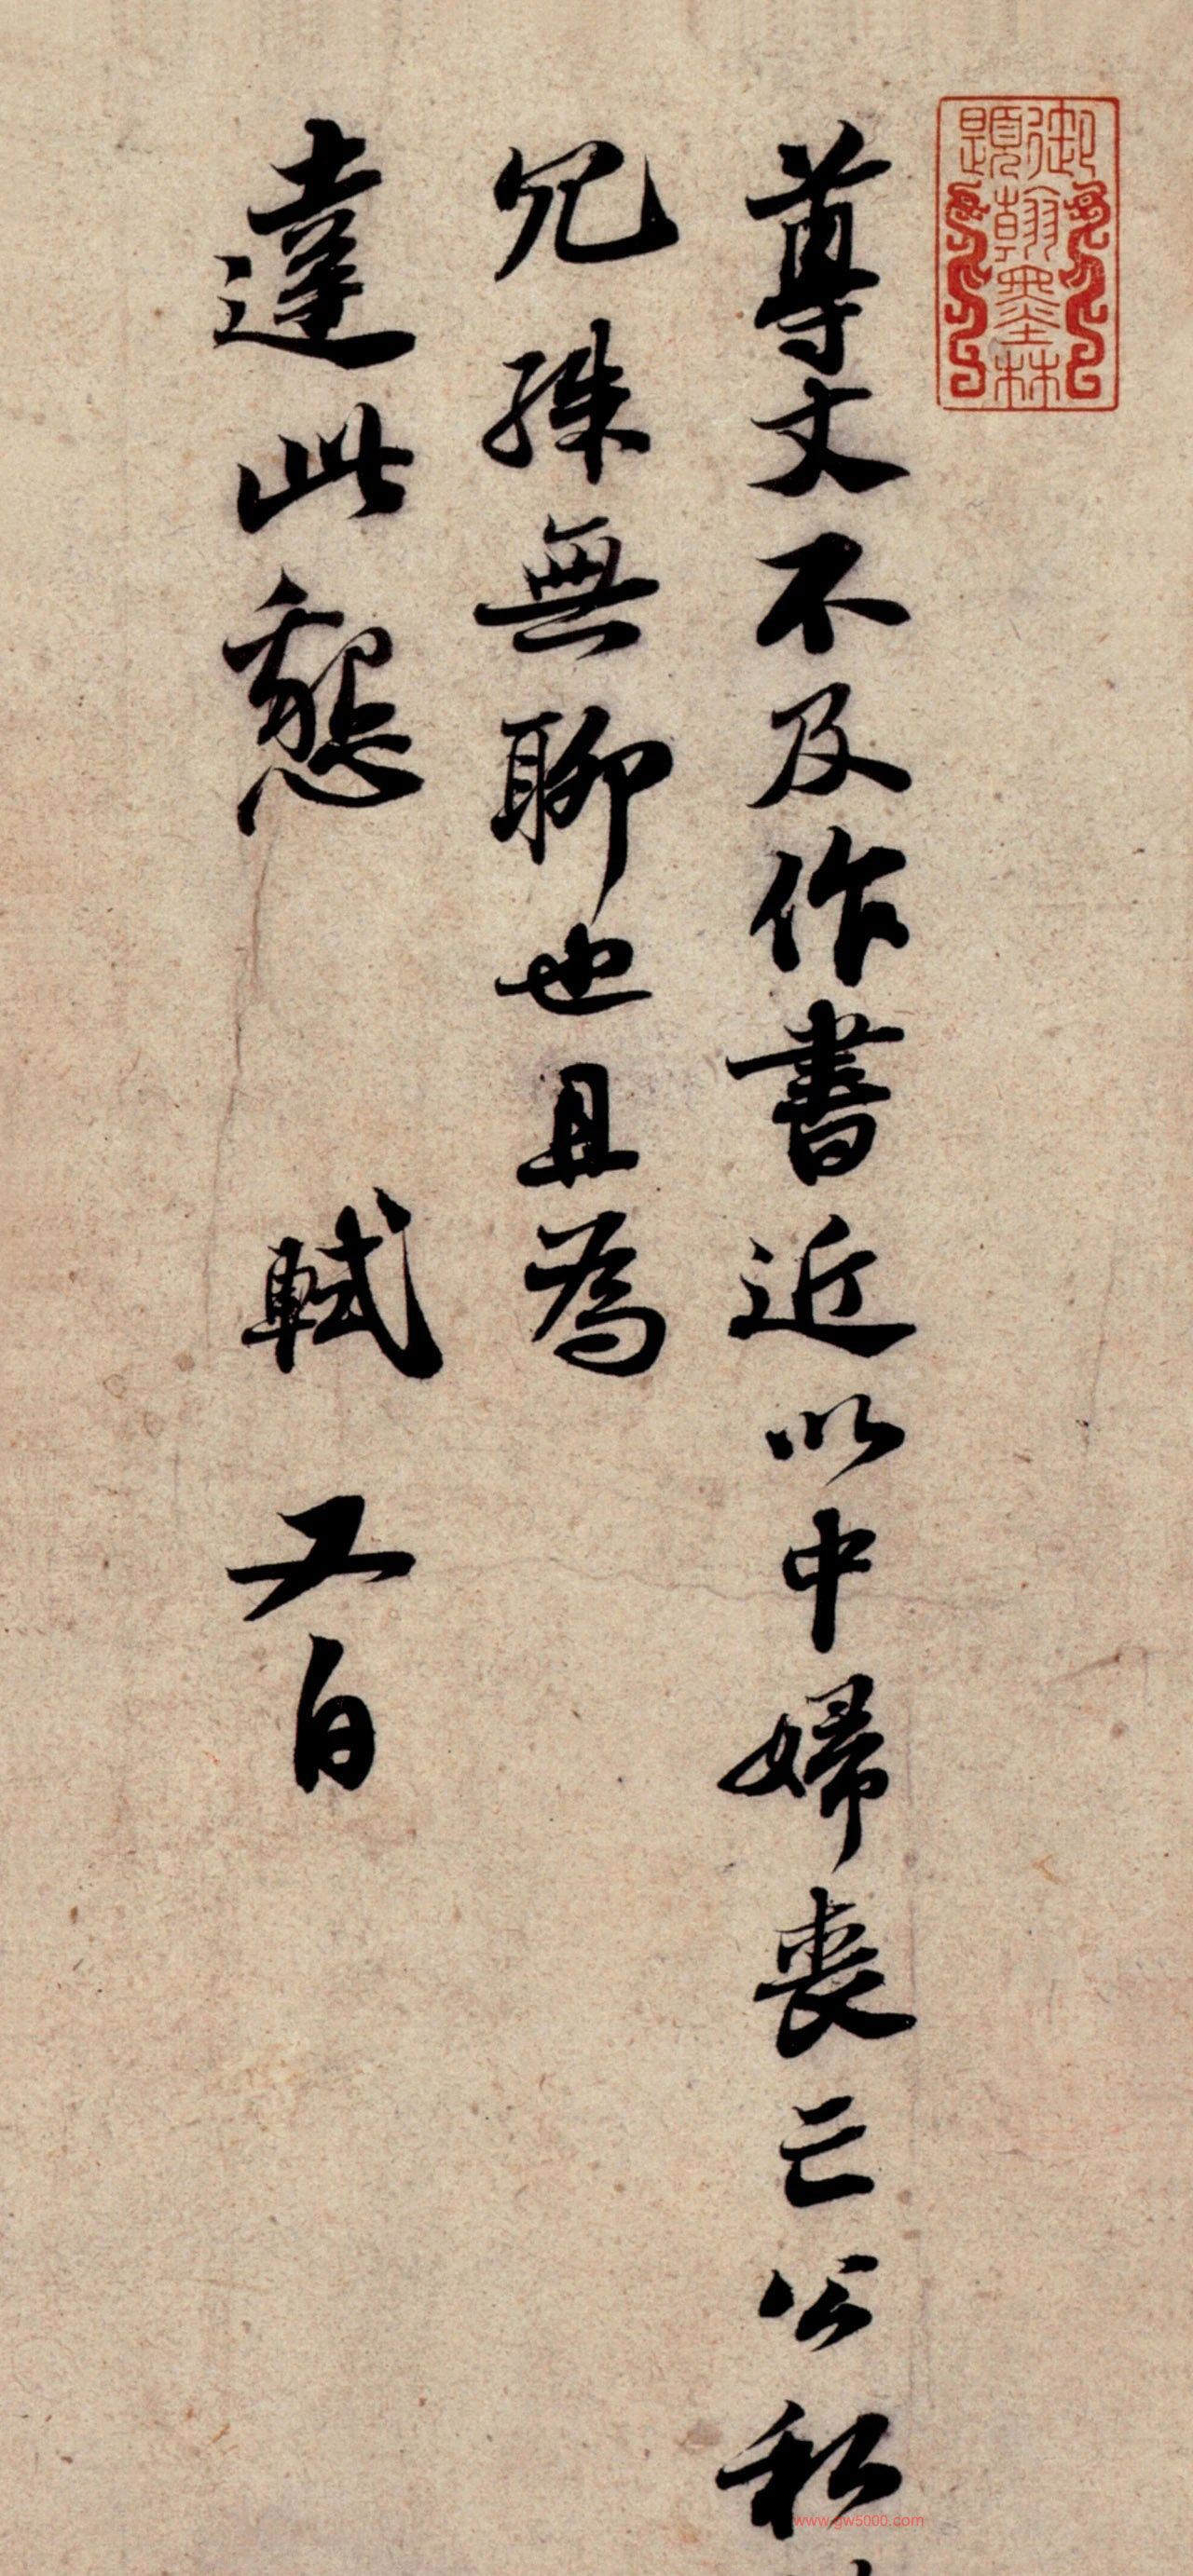 御題翰墨林
尊丈不及作書近以中婦喪亡公私
冗殊無聊也且為
達此懇 軾又白
www.gw5000.com